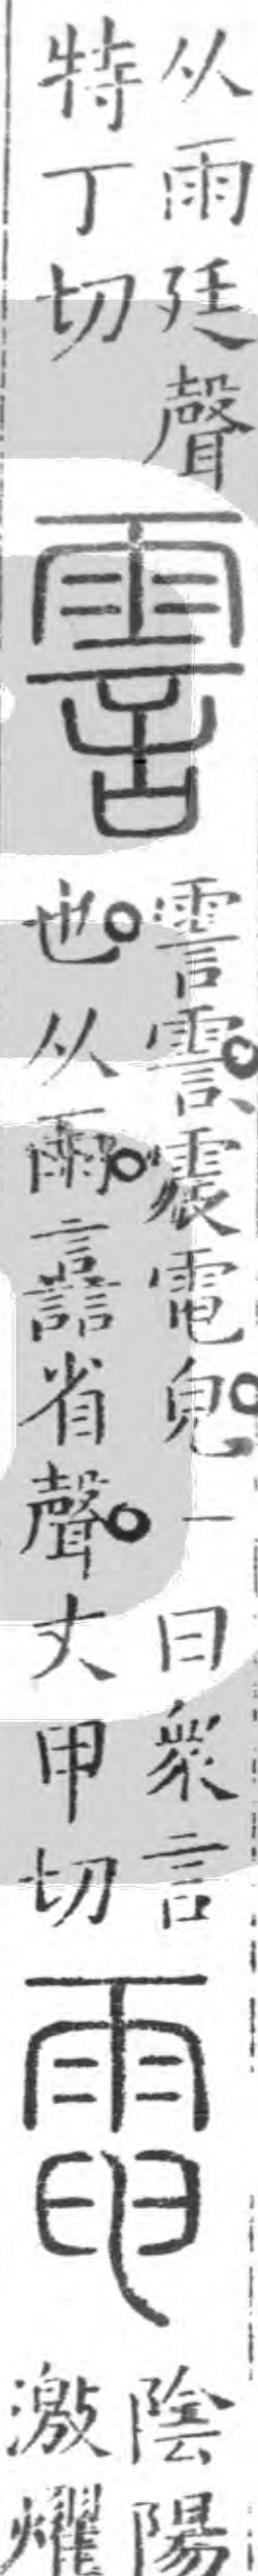 从雨廷聲
特丁切
霅
霅霅震電皃一曰衆言
也从雨譶省聲丈甲切
電
陰陽
激燿